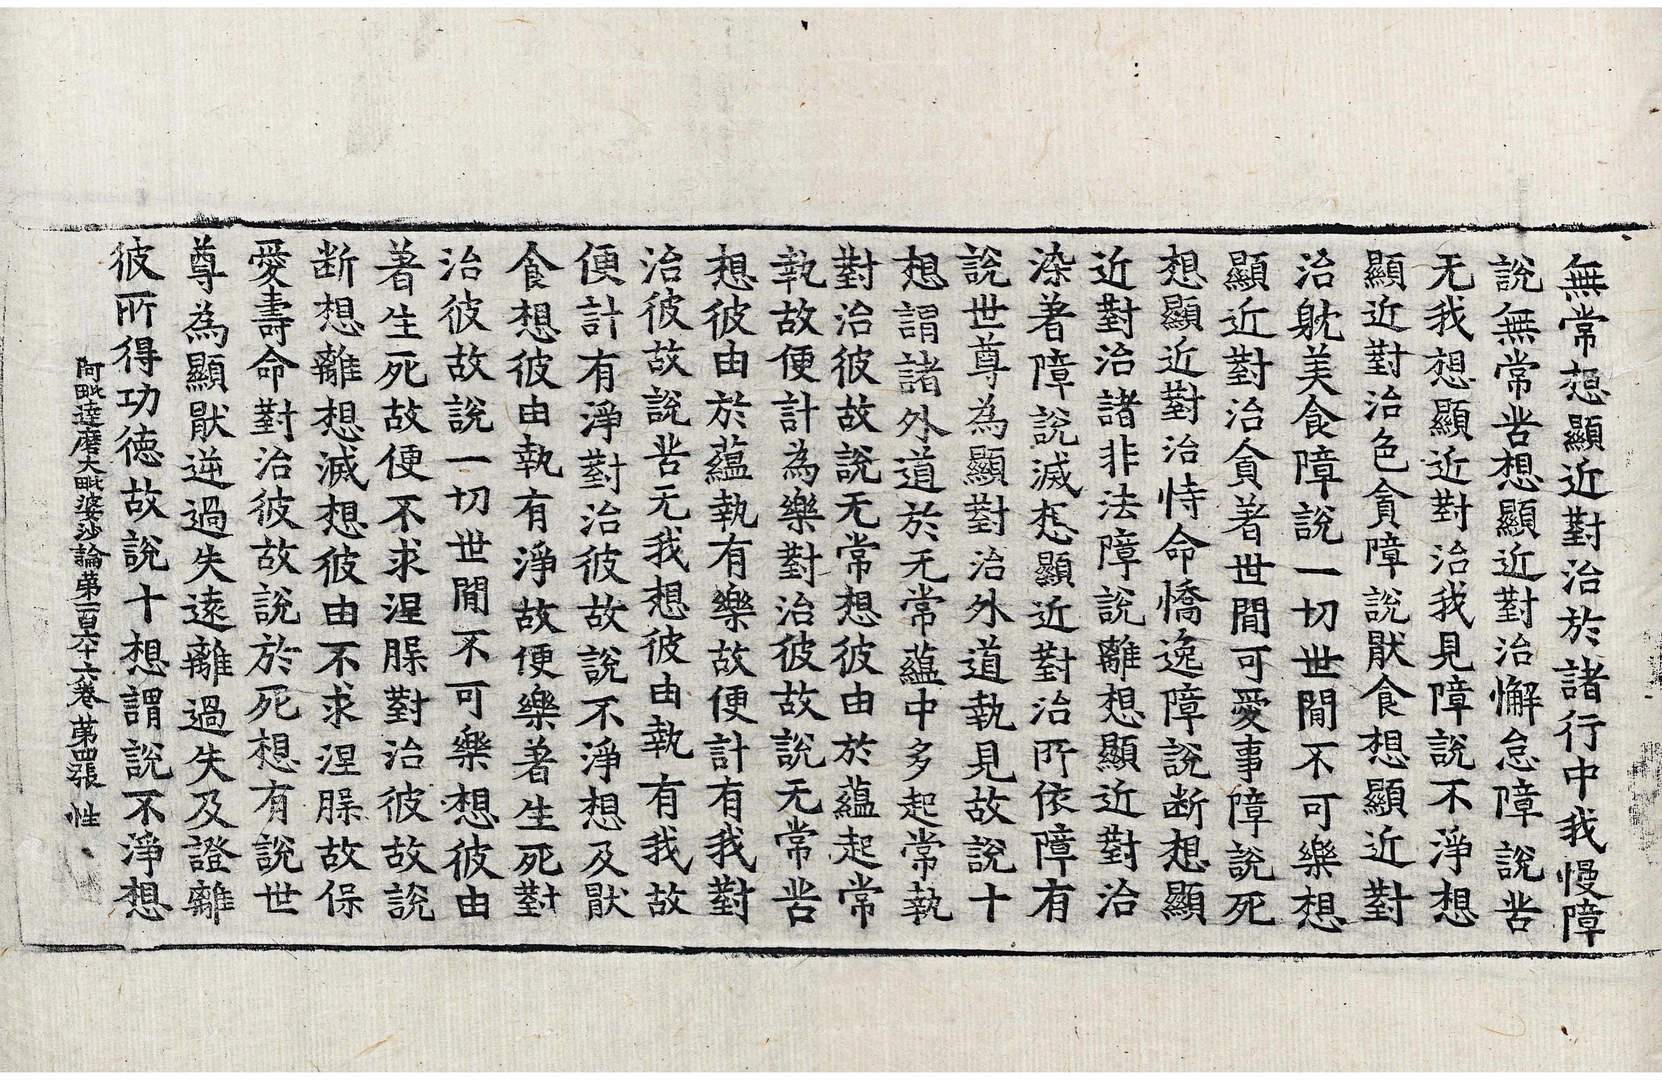 無常想顯近對治於諸行中我慢障
說無常苦想顯近對治懈怠障說苦
无我想顯近對治我見障說不淨想
顯近對治色貪障說猒食想顯近對
治躭美食障說一切世間不可樂想
顯近對治貪著世間可愛事障說死
想顯近對治恃命憍逸障說断想顯
近對治諸非法障說離想顯近對治
染著障說滅想顯近對治所依障有
說世尊為顯對治外道執見故說十
想謂諸外道於无常蘊中多起常執
對治彼故說无常想彼由於蘊起常
執故便計為樂對治彼故說无常苦
想彼由於蘊執有樂故便計有我對
治彼故說苦无我想彼由執有我故
便計有淨對治彼故說不淨想及猒
食想彼由執有淨故便樂著生死對
治彼故說一切世間不可樂想彼由
著生死故便不求涅槃對治彼故說
断想離想滅想彼由不求涅槃故保
愛壽命對治彼故說於死想有說世
尊為顯猒逆過失遠離過失及證離
彼所得功德故說十想謂說不淨想
阿毗達磨大毗婆沙論第一百六十六卷 第四張 性